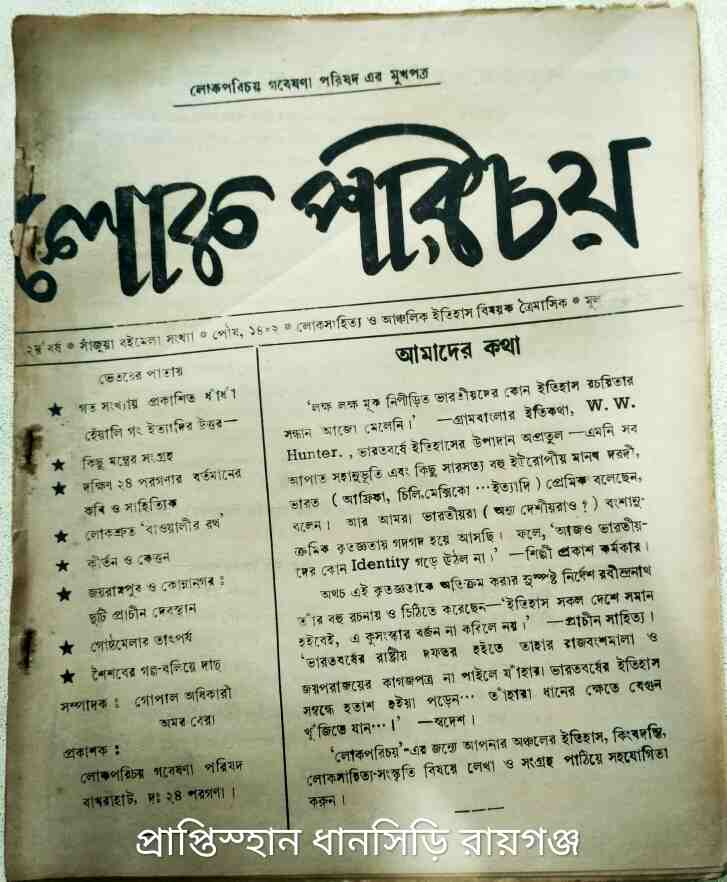 লোকপরিচয় গবেষণা পরিষদ এর মুখপত্র
লোক পরিচয়
২য় বর্ষ * সাঁজুয়া বইমেলা সংখ্যা * পৌষ, ১৪০২ * লোকসাহিত্য ও আঞ্চলিক ইতিহাস বিষয়ক ত্রৈমাসিক *
ভেতরের পাতায়
★ গত সংখ্যায় প্রকাশিত ধাঁধাঁ
হেঁয়ালি গং ইত্যাদির উত্তর—
★ কিছু মন্ত্রের সংগ্রহ
★ দক্ষিণ ২৪ পরগণার বর্তমানের
কবি ও সাহিত্যিক
★ লোকশ্রুত 'বাওয়ালীর রথ'
★ কীর্তন ও কেত্তন
★ জয়রামপুর ও কোন্নাগর :
দুটি প্রাচীন দেবস্থান
★ গোষ্ঠমেলার তাৎপর্য
★ শৈশবের গল্প-বলিয়ে দাদু
সম্পাদক : গোপাল অধিকারী
অমর বেরা
প্রকাশক :
লোকপরিচয় গবেষণা পরিষদ
বাখরাহাট, দঃ ২৪ পরগণা।
আমাদের কথা
'লক্ষ লক্ষ মূক নিপীড়িত ভারতীয়দের কোন ইতিহাস রচয়িতার
সন্ধান আজো মেলেনি।' —গ্রামবাংলার ইতিকথা, W. W.
Hunter. , ভারতবর্ষে ইতিহাসের উপাদান অপ্রতুল —এমনি সব
আপাত সহানুভূতি এবং কিছু সারসত্য বহু ইউরোপীয় মানব দরদী,
ভারত ( আফ্রিকা, চিলি,মেক্সিকো ···ইত্যাদি ) প্রেমিক বলেছেন,
বলেন। আর আমরা ভারতীয়রা ( অন্য দেশীয়রাও ? ) বংশানু-
ক্রমিক কৃতজ্ঞতায় গদগদ হয়ে আসছি। ফলে, 'আজও ভারতীয়-
দের কোন Identity গড়ে উঠল না।' —শিল্পী প্রকাশ কর্মকার।
অথচ এই কৃতজ্ঞতাকে অতিক্রম করার সুস্পষ্ট নির্দেশ রবীন্দ্রনাথ
তাঁর বহু রচনায় ও চিঠিতে করেছেন—'ইতিহাস সকল দেশে সমান
হইবেই, এ কুসংস্কার বর্জন না করিলে নয়।' —প্রাচীন সাহিত্য।
'ভারতবর্ষের রাষ্ট্রীয় দফতর হইতে তাহার রাজবংশমালা ও
জয়পরাজয়ের কাগজপত্র না পাইলে যাঁহারা ভারতবর্ষের ইতিহাস
সম্বন্ধে হতাশ হইয়া পড়েন··· তাঁহারা ধানের ক্ষেতে বেগুন
খুঁজিতে যান···।' —স্বদেশ।
'লোকপরিচয়'-এর জন্যে আপনার অঞ্চলের ইতিহাস, কিংবদন্তি,
লোকসাহিত্য-সংস্কৃতি বিষয়ে লেখা ও সংগ্রহ পাঠিয়ে সহযোগিতা
করুন।
প্রাপ্তিস্হান ধানসিড়ি রায়গঞ্জ